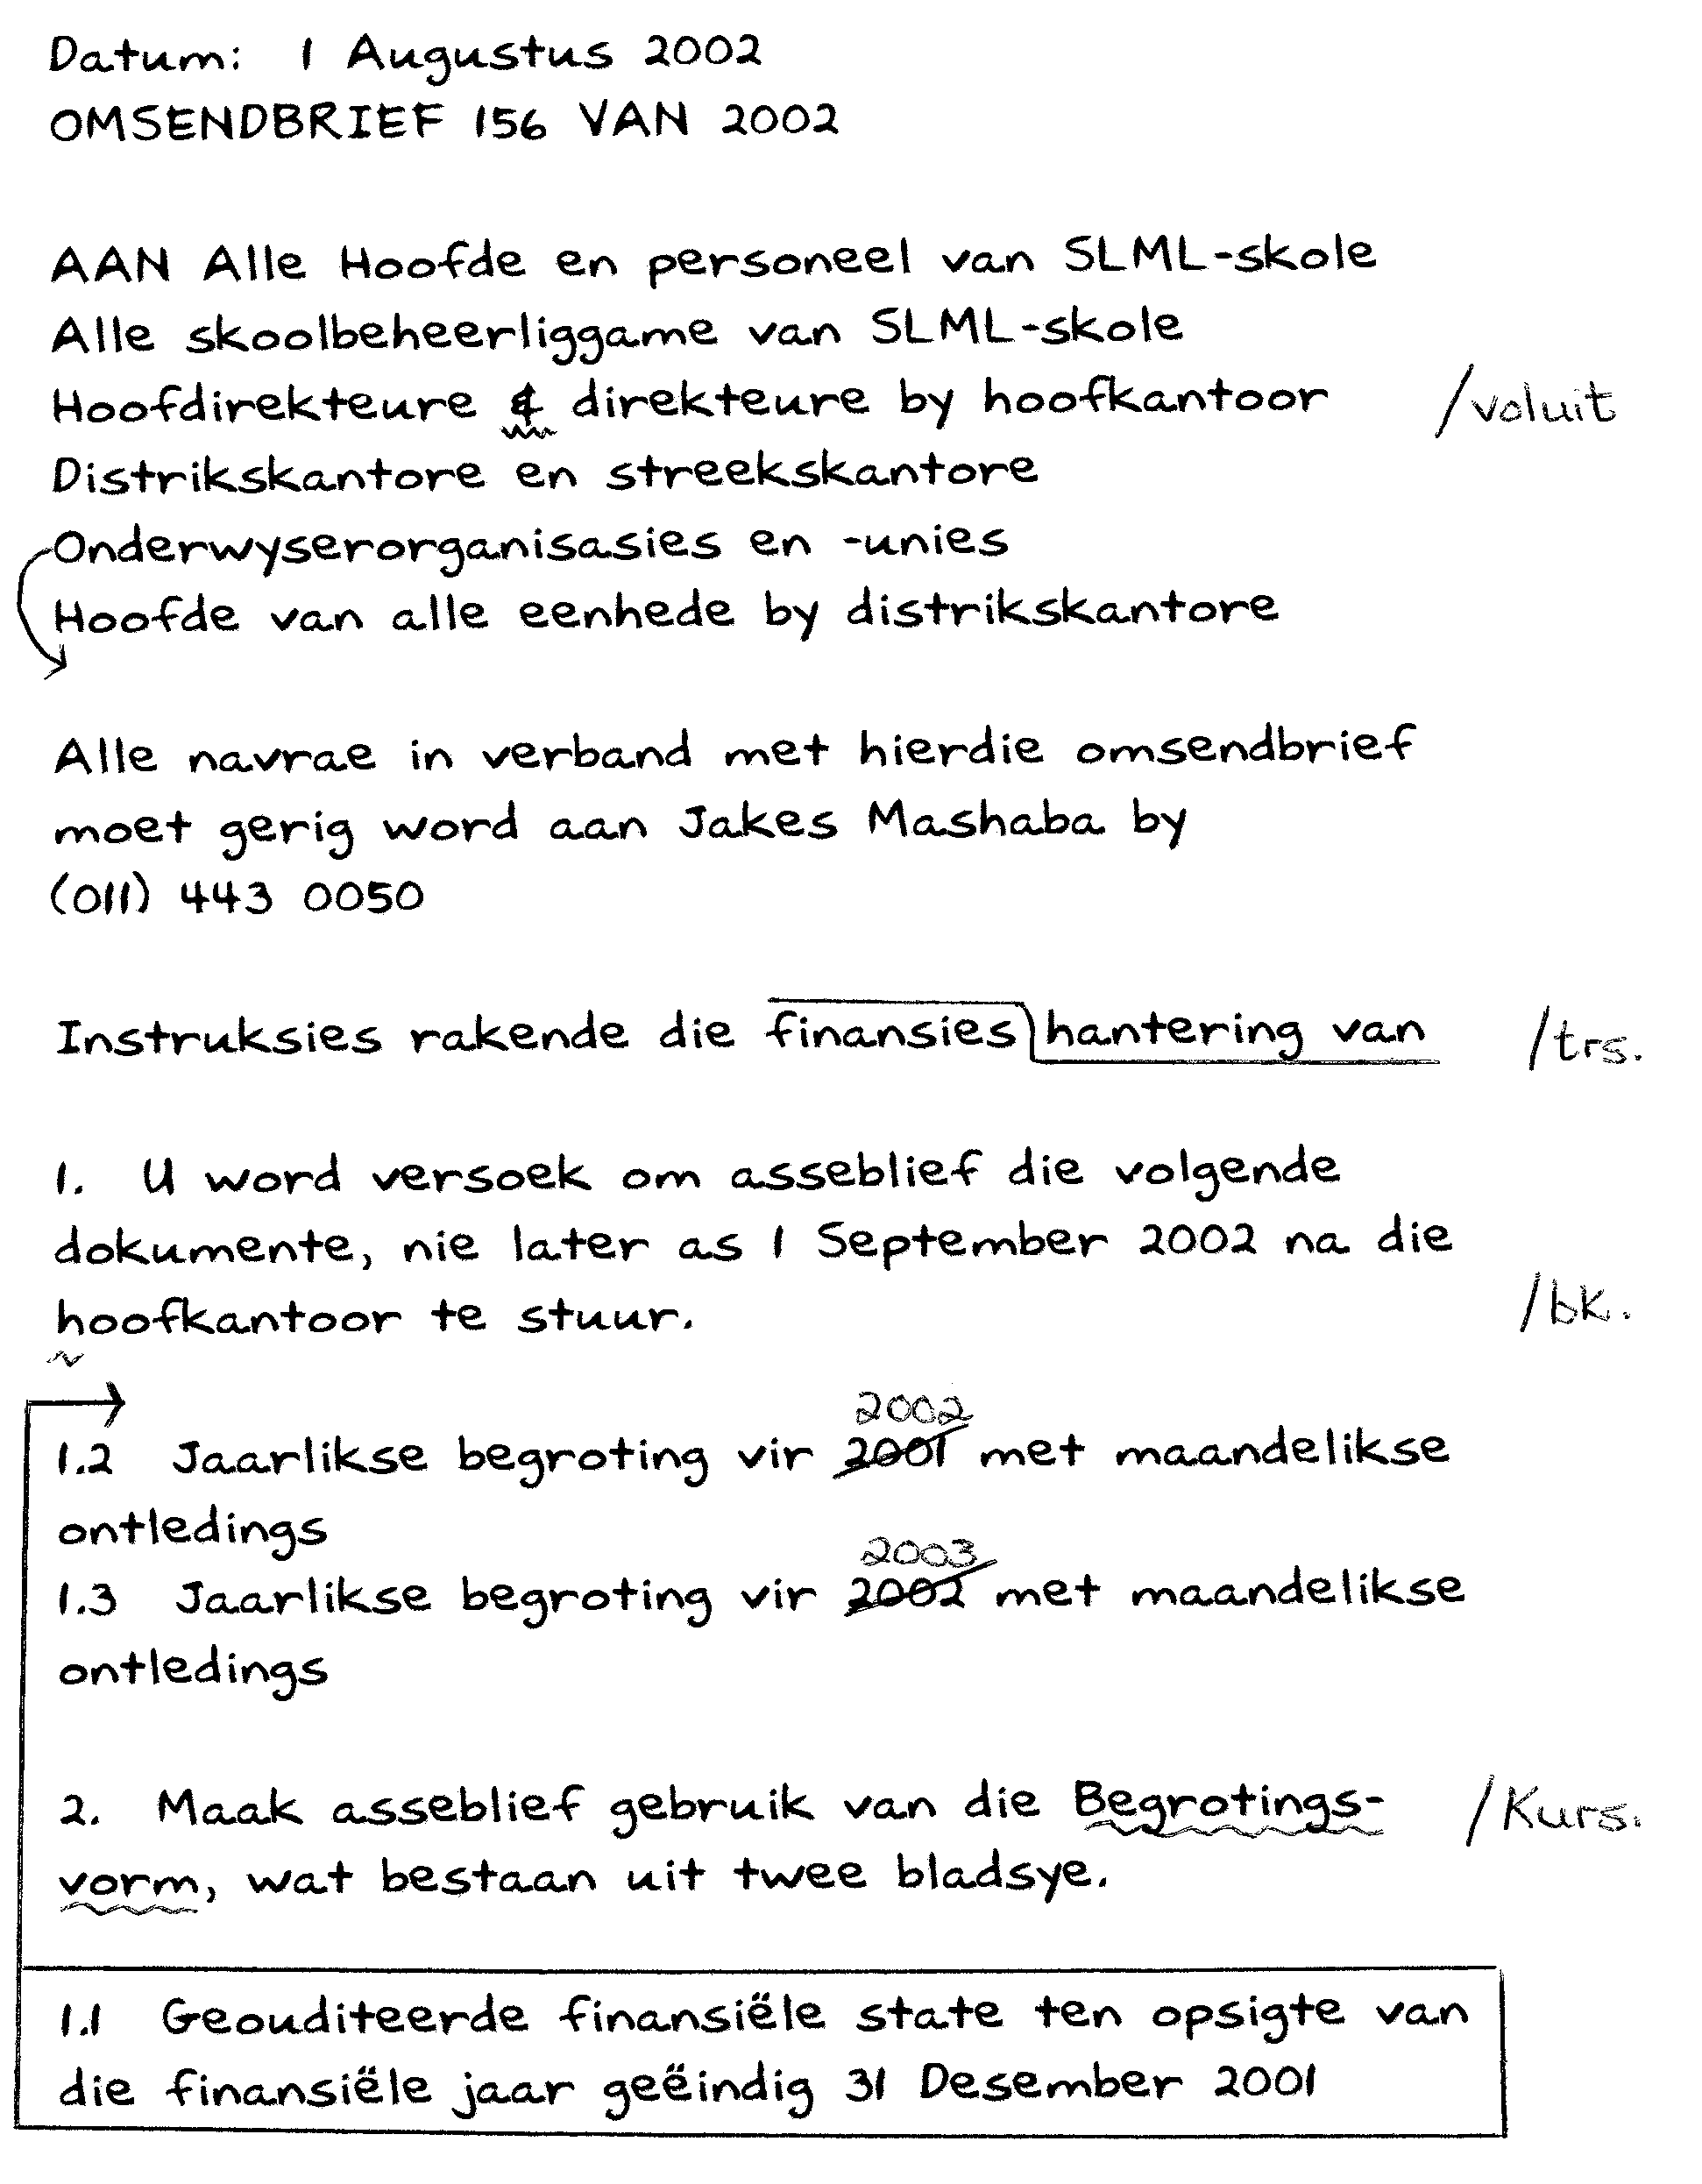 Datum: 1 Augustus 2002
OMSENDBRIEF 156 VAN 2002
AAN Alle Hoofde en personeel van SLML-skole
Alle skoolbeheerliggame van SLML-skole
Hoofdirekteure & direkteure by hoofkantoor /voluit
Distrikskantore en streekskantore
Onderwyserorganisasies en -unies
Hoofde van alle eenhede by distrikskantore
Alle navrae in verband met hierdie omsendbrief
moet gerig word aan Jakes Mashaba by
(011) 443 0050
Instruksies rakende die finansies hantering van /trs.
1. U word versoek om asseblief die volgende
dokumente, nie later as 1 September 2002 na die
hoofkantoor te stuur. /bk.
2002
1.2 Jaarlikse begroting vir 2001 met maandelikse
ontledings
2003
1.3 Jaarlikse begroting vir 2002 met maandelikse
ontledings
2. Maak asseblief gebruik van die Begrotings- /Kurs.
vorm, wat bestaan uit twee bladsye.
1.1 Geouditeerde finansiële state ten opsigte van
die finansiële jaar geëindig 31 Desember 2001